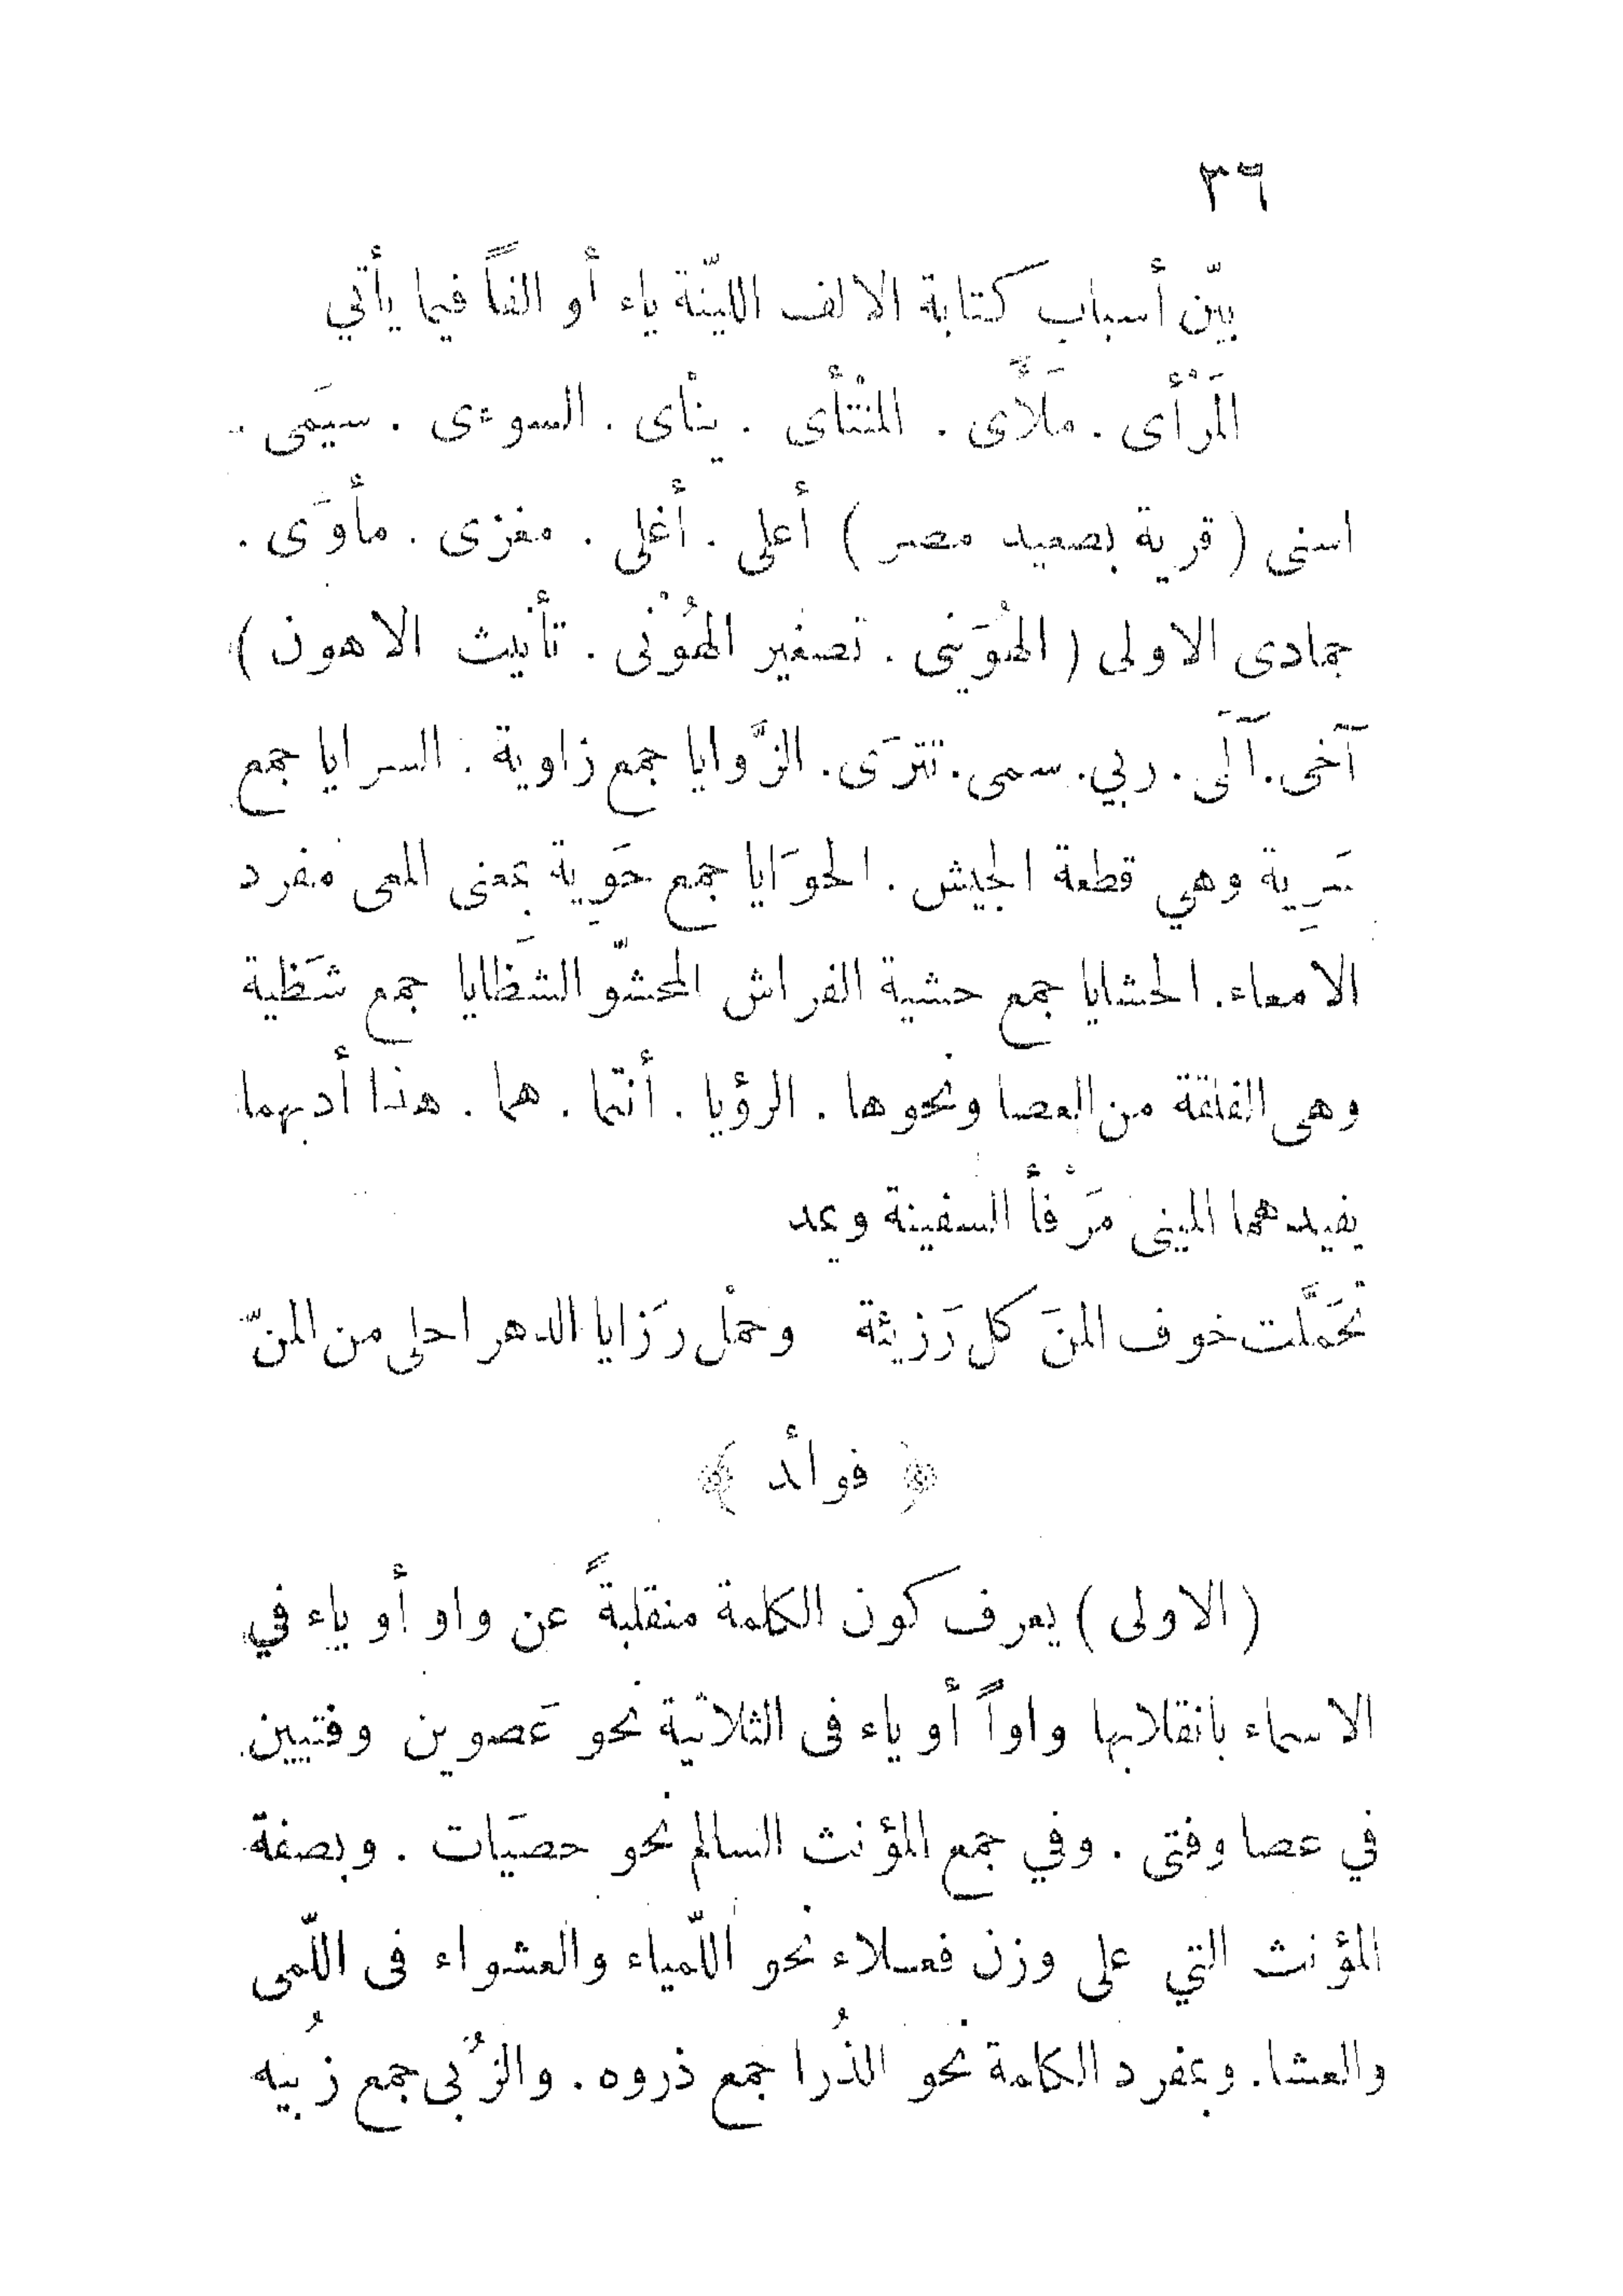 ٣٦
بيّن أسباب كتابة الالف الليّنة ياء أو الفاً فيما يأتي
المَرْأى . مَلَآى . المنْتأى . ينْاى . السوءى . سيَمى .
اسنى ( قرية بصعيد مصر ) أعلى . أغلى . مغزى . مأوَى .
جمادى الاولى ( الهُوَينى . تصغير الهُوْنى . تأنيث الاهون )
آخى . آلَى . ربي . سمى . تترَى . الزَّوايا جمع زاوية . السرايا جمع
سَرِية وهي قطعة الجيش . الحوَايا جمع حَوِية بمعنى المعى مفرد
الامعاء . الحشايا جمع حشية الفراش المحشوّ الشَظايا جمع شَظِية
وهى الفلقة من العصا ونحوها . الرؤيا . أنتما . هما . هذا أدبهما
يفيدهما المينى مَرْفأ السفينة ويمد
تحَمَّلت خوف المنَ كل رَزيئة وحمْل رَزايا الدهر احلى من المنّ
﴿ فوائد ﴾
( الاولى ) يعرف كون الكلمة منقلبةً عن واو أو ياء في
الاسماء بانقلابها واواً أو ياء فى الثلاثية نحو عَصوين وفتيين
في عصا وفتى . وفي جمع المؤنث السالم نحو حصَيات . وبصفة
المؤنث التي على وزن فعلاء نحو اللّمياء والعشواء فى اللّمى
والعشا . وبمفرد الكلمة نحو الذُرا جمع ذروه . والزُبى جمع زُبيه